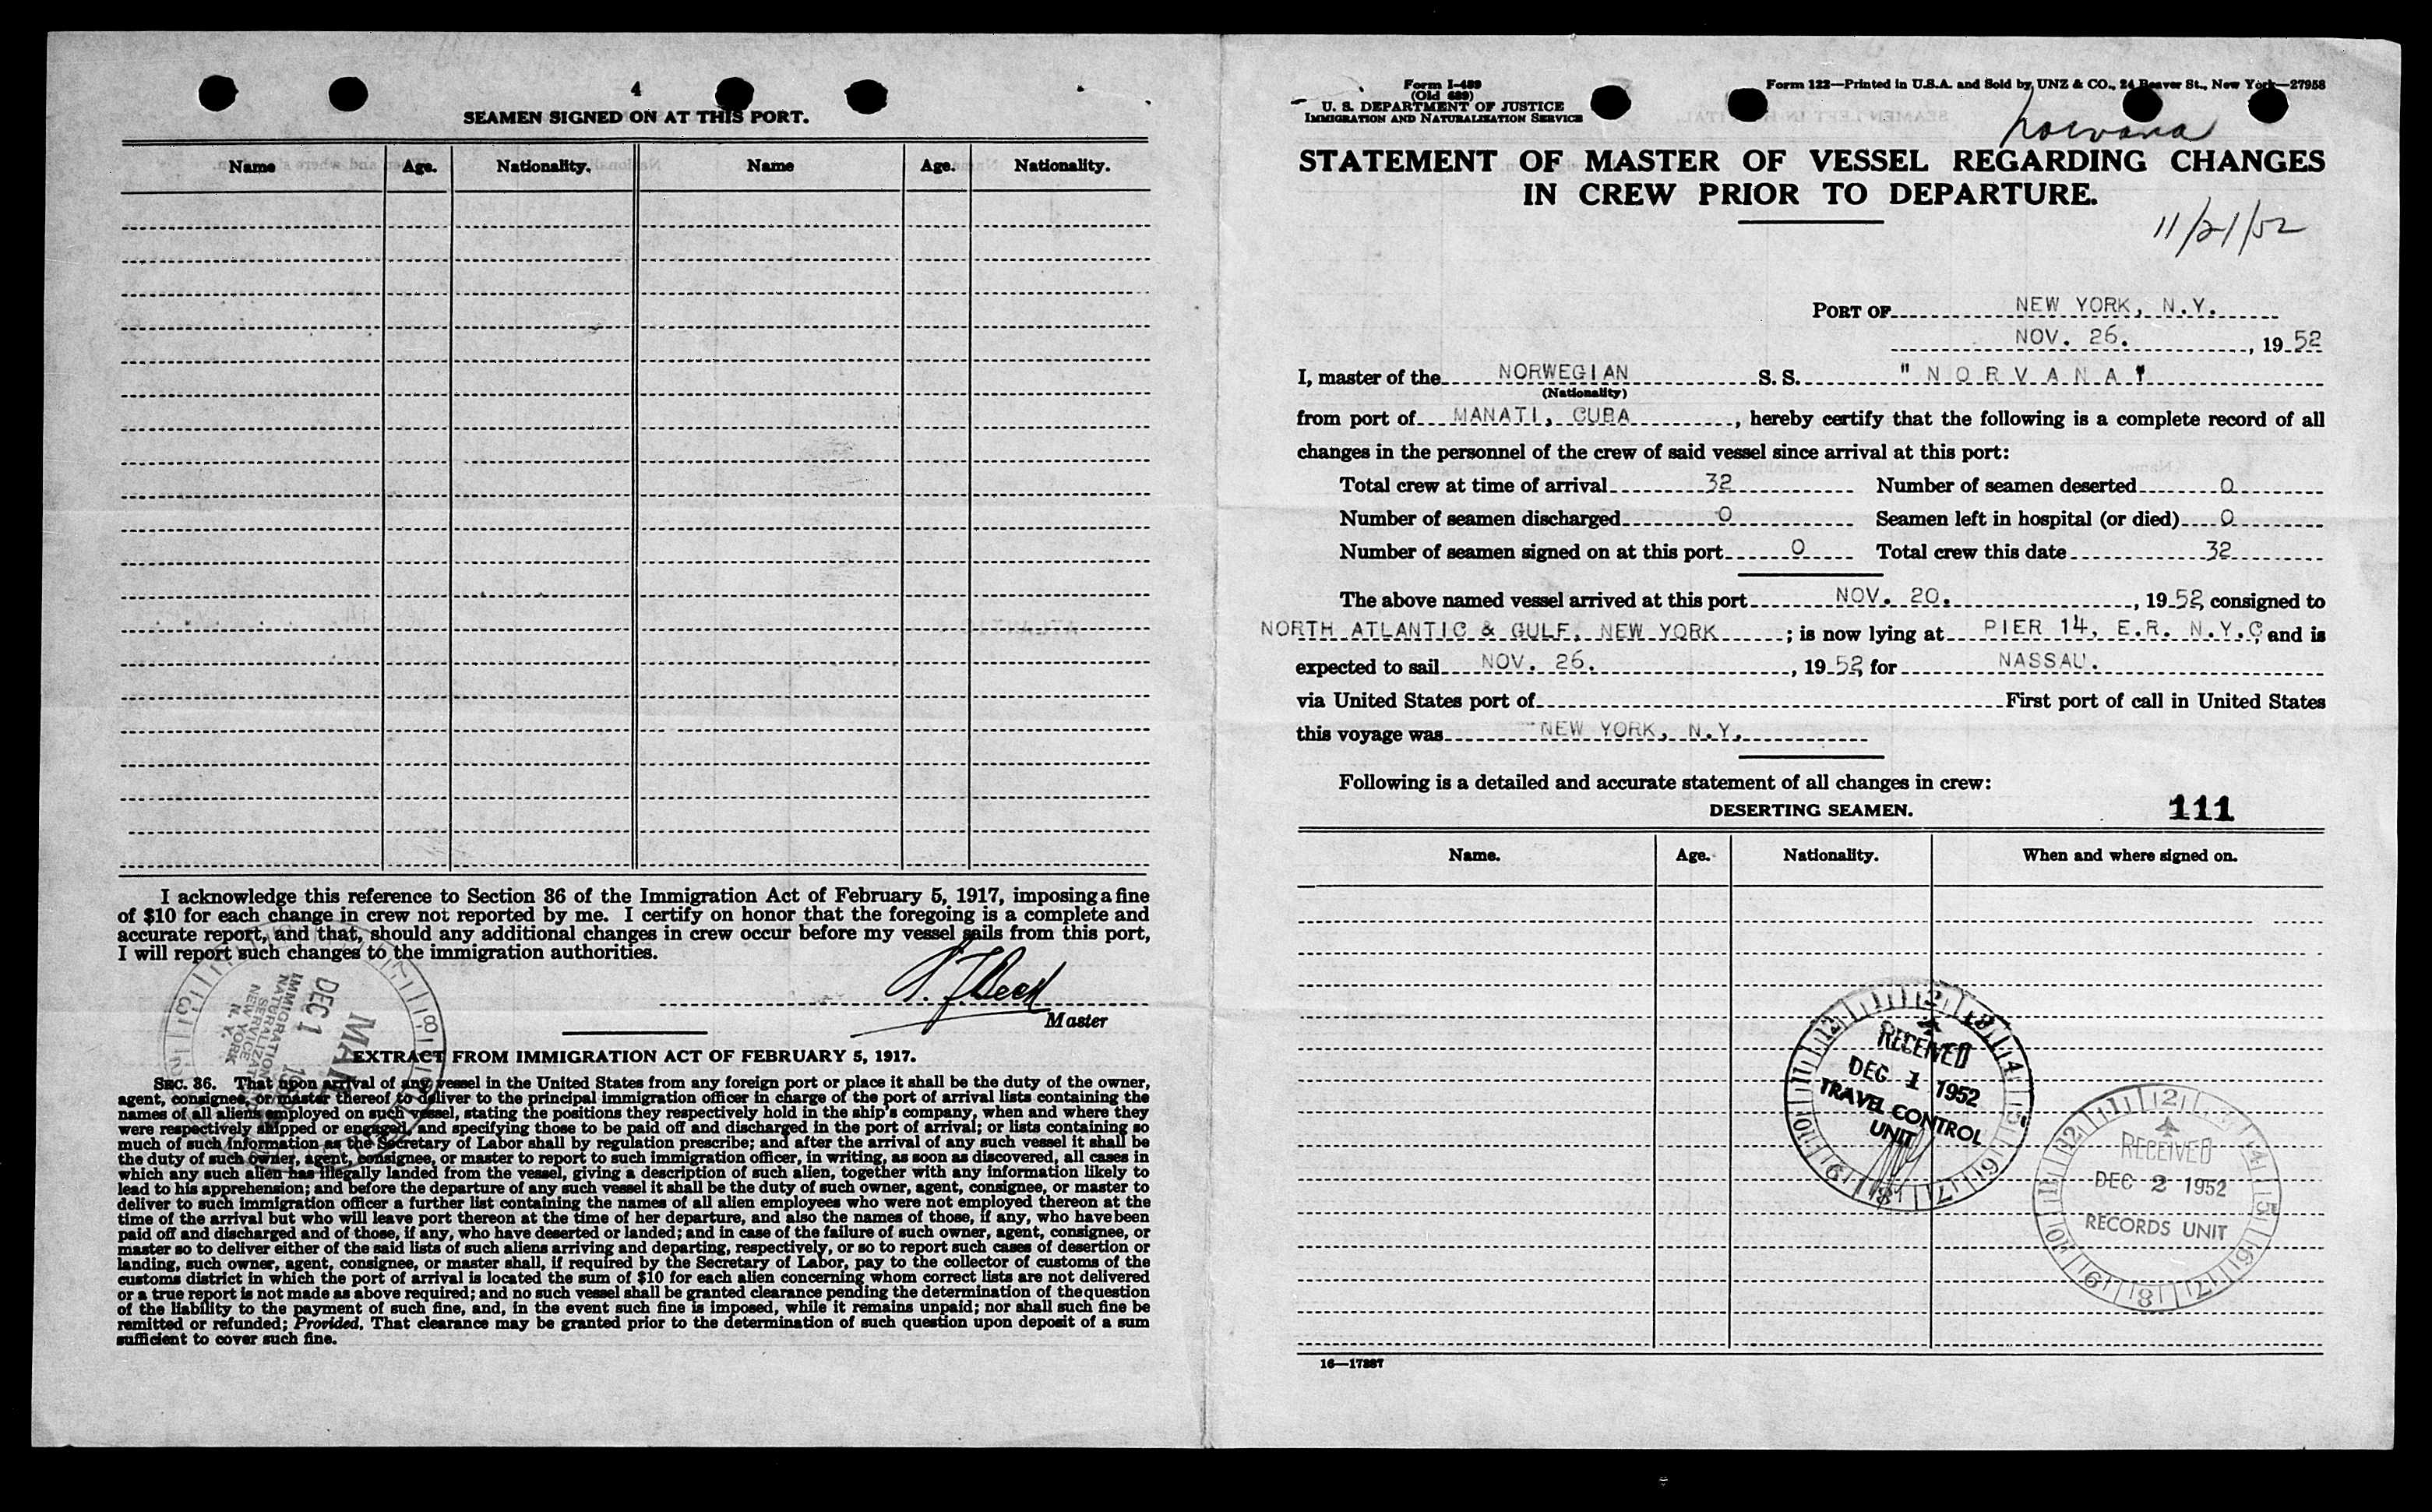 4
SEAMEN SIGNED ON AT THIS PORT.
Name Age. Nationality. Name Age. Nationality.
I acknowledge this reference to Section 36 of the Immigration Act of February 5, 1917, imposing a fine
of $10 for each change in crew not reported by me. I certify on honor that the foregoing is a complete and
accurate report, and that, should any additional changes in crew occur before my vessel sails from this port,
I will report such changes to the immigration authorities.
Master
DEC 1
IMMIGRATION
NATURALIZAT
SERVICE
NEW YORK
N. Y.
EXTRACT FROM IMMIGRATION ACT OF FEBRUARY 5, 1917.
SEC. 36. That upon arrival of any vessel in the United States from any foreign port or place it shall be the duty of the owner,
agent, consignee, or master thereof to deliver to the principal immigration officer in charge of the port of arrival lists containing the
names of all aliens employed on such vessel, stating the positions they respectively hold in the ship's company, when and where they
were respectively shipped or engaged, and specifying those to be paid off and discharged in the port of arrival; or lists containing so
much of such information as the Secretary of Labor shall by regulation prescribe; and after the arrival of any such vessel it shall be
the duty of such owner, agent, consignee, or master to report to such immigration officer, in writing, as soon as discovered, all cases in
which any such alien has illegally landed from the vessel, giving a description of such alien, together with any information likely to
lead to his apprehension; and before the departure of any such vessel it shall be the duty of such owner, agent, consignee, or master to
deliver to such immigration officer a further list containing the names of all alien employees who were not employed thereon at the
time of the arrival but who will leave port thereon at the time of her departure, and also the names of those, if any, who have been
paid off and discharged and of those, if any, who have deserted or landed; and in case of the failure of such owner, agent, consignee, or
master so to deliver either of the said lists of such aliens arriving and departing, respectively, or so to report such cases of desertion or
landing, such owner, agent, consignee, or master shall, if required by the Secretary of Labor, pay to the collector of customs of the
customs district in which the port of arrival is located the sum of $10 for each alien concerning whom correct lists are not delivered
or a true report is not made as above required; and no such vessel shall be granted clearance pending the determination of the question
of the liability to the payment of such fine, and, in the event such fine is imposed, while it remains unpaid; nor shall such fine be
remitted or refunded; Provided, That clearance may be granted prior to the determination of such question upon deposit of a sum
sufficient to cover such fine.
Form I-489
(Old 689)
U. S. DEPARTMENT OF JUSTICE
IMMIGRATION AND NATURALIZATION SERVICE
Form 122—Printed in U.S.A. and Sold by UNZ & CO., 24 Beaver St., New York—27958
Norvana
STATEMENT OF MASTER OF VESSEL REGARDING CHANGES
IN CREW PRIOR TO DEPARTURE.
11/21/52
PORT OF NEW YORK, N.Y.
NOV. 26. , 19 52
I, master of the NORWEGIAN S. S. "NORVANA"
(Nationality)
from port of MANATI, CUBA , hereby certify that the following is a complete record of all
changes in the personnel of the crew of said vessel since arrival at this port:
Total crew at time of arrival 32 Number of seamen deserted 0
Number of seamen discharged 0 Seamen left in hospital (or died) 0
Number of seamen signed on at this port 0 Total crew this date 32
The above named vessel arrived at this port NOV. 20. , 19 52, consigned to
NORTH ATLANTIC & GULF, NEW YORK ; is now lying at PIER 14, E.R. N.Y.C, and is
expected to sail NOV. 26. , 19 52, for NASSAU.
via United States port of First port of call in United States
this voyage was NEW YORK, N.Y.
Following is a detailed and accurate statement of all changes in crew:
DESERTING SEAMEN. 111
Name. Age. Nationality. When and where signed on.
RECEIVED
DEC 1 1952
TRAVEL CONTROL
UNIT
RECEIVED
DEC 2 1952
RECORDS UNIT
16—17287